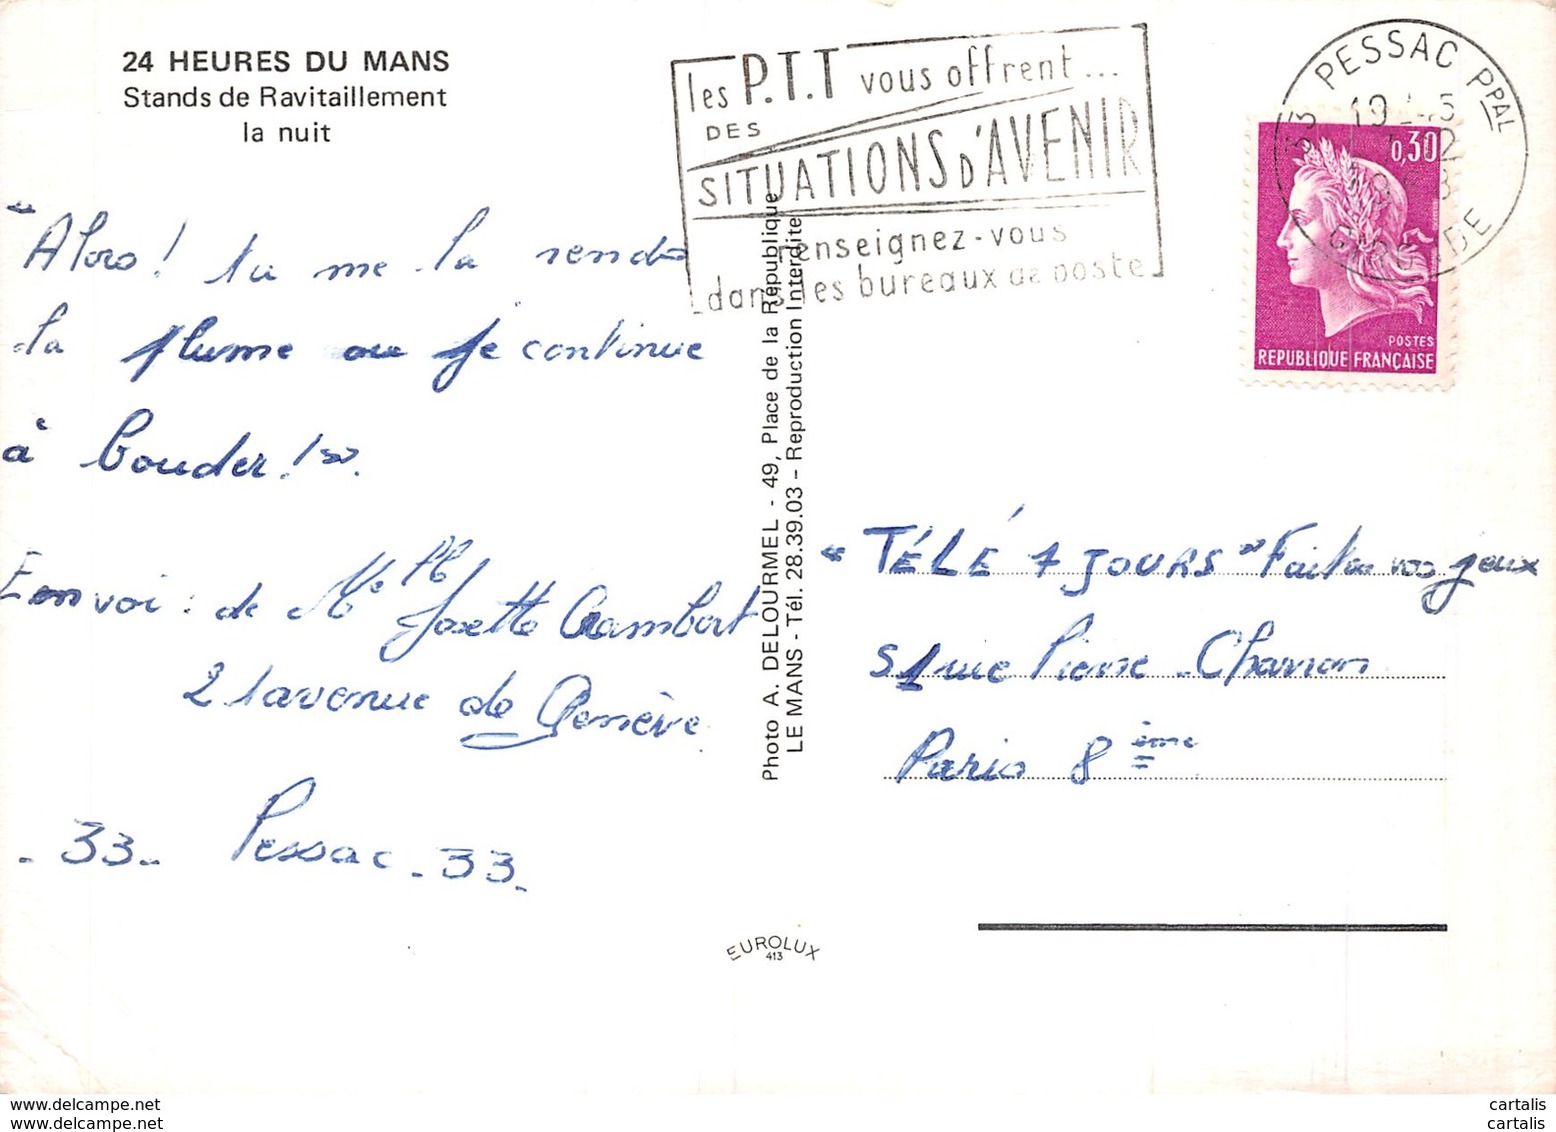 24 HEURES DU MANS
Stands de Ravitaillement
la nuit
les P.T.T vous offrent...
DES
SITUATIONS d'AVENIR
renseignez-vous
dans les bureaux de poste
33 PESSAC PPAL
GIRONDE
0,30
POSTES
REPUBLIQUE FRANÇAISE
"Alors! tu me la rends
la plume ou je continue
à bouder!"
Envoi : de Me Josette
21 avenue de Genève
- 33 - Pessac - 33 -
Photo A. DELOURMEL - 49, Place de la République
LE MANS - Tél. 28.39.03 - Reproduction Interdite
"TÉLÉ 7 JOURS" Faites vos jeux
51 rue Pierre Charron
Paris 8 ème
EUROLUX
413
www.delcampe.net
cartalis
cartalis